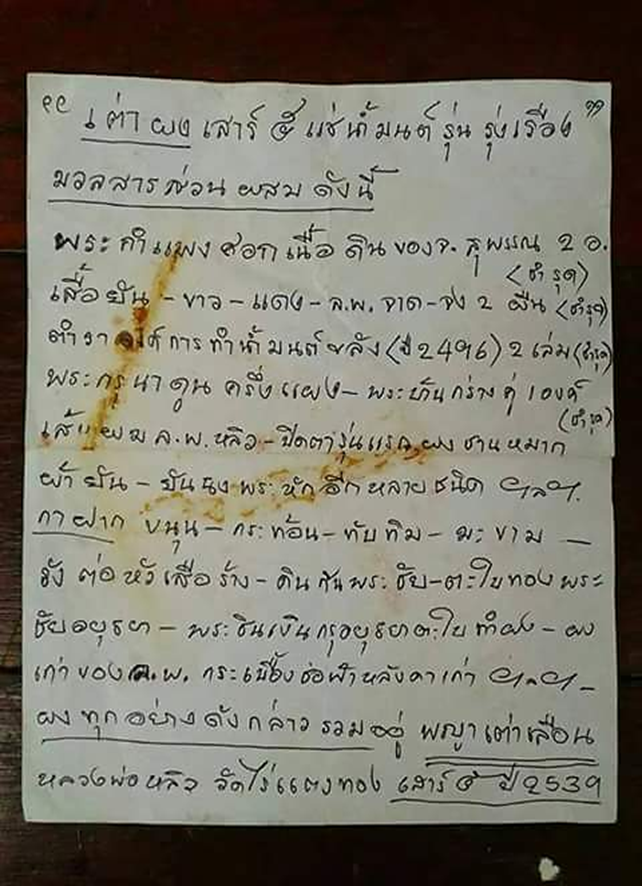 "เต่าผง เสาร์ ๕ แช่น้ำมนต์ รุ่น รุ่งเรือง"
มวลสารส่วนผสม ดังนี้
พระกำแพงศอกเนื้อดินของจ.สุพรรณ 2 อ.
(ชำรุด)
เสื้อยันต์ - ขาว - แดง - ล.พ. จาด - จง 2 ผืน (ชำรุด)
การทำน้ำมนต์ขลัง (ปี 2496) 2 เล่ม (ชำรุด)
พระกรุนาดูน ครึ่งแผง - พระหินกร่าง คู่ 1 องค์
(ชำรุด)
ล.พ. หลิว - ปิดตารุ่นแรก ผงชานหมาก
ผ้ายัน - พระหักอีกหลายชนิด ฯลฯ.
กาฝาก ขนุน - กระท้อน - ทับทิม - มะขาม -
รังต่อหัวเสือร้าง - พระชัย - ตะไบทองพระ
ชัยอยุธยา - พระชินเงินกรุอยุธยาตะไบทำผง - ผง
เก่าของ ล.พ. กระเบื้องช่อฟ้าหลังคาเก่า ฯลฯ -
ผงทุกอย่างดังกล่าว รวมอยู่ พญาเต่าเลือน
หลวงพ่อหลิว วัดไร่แตงทอง เสาร์ ๕ ปี 2539